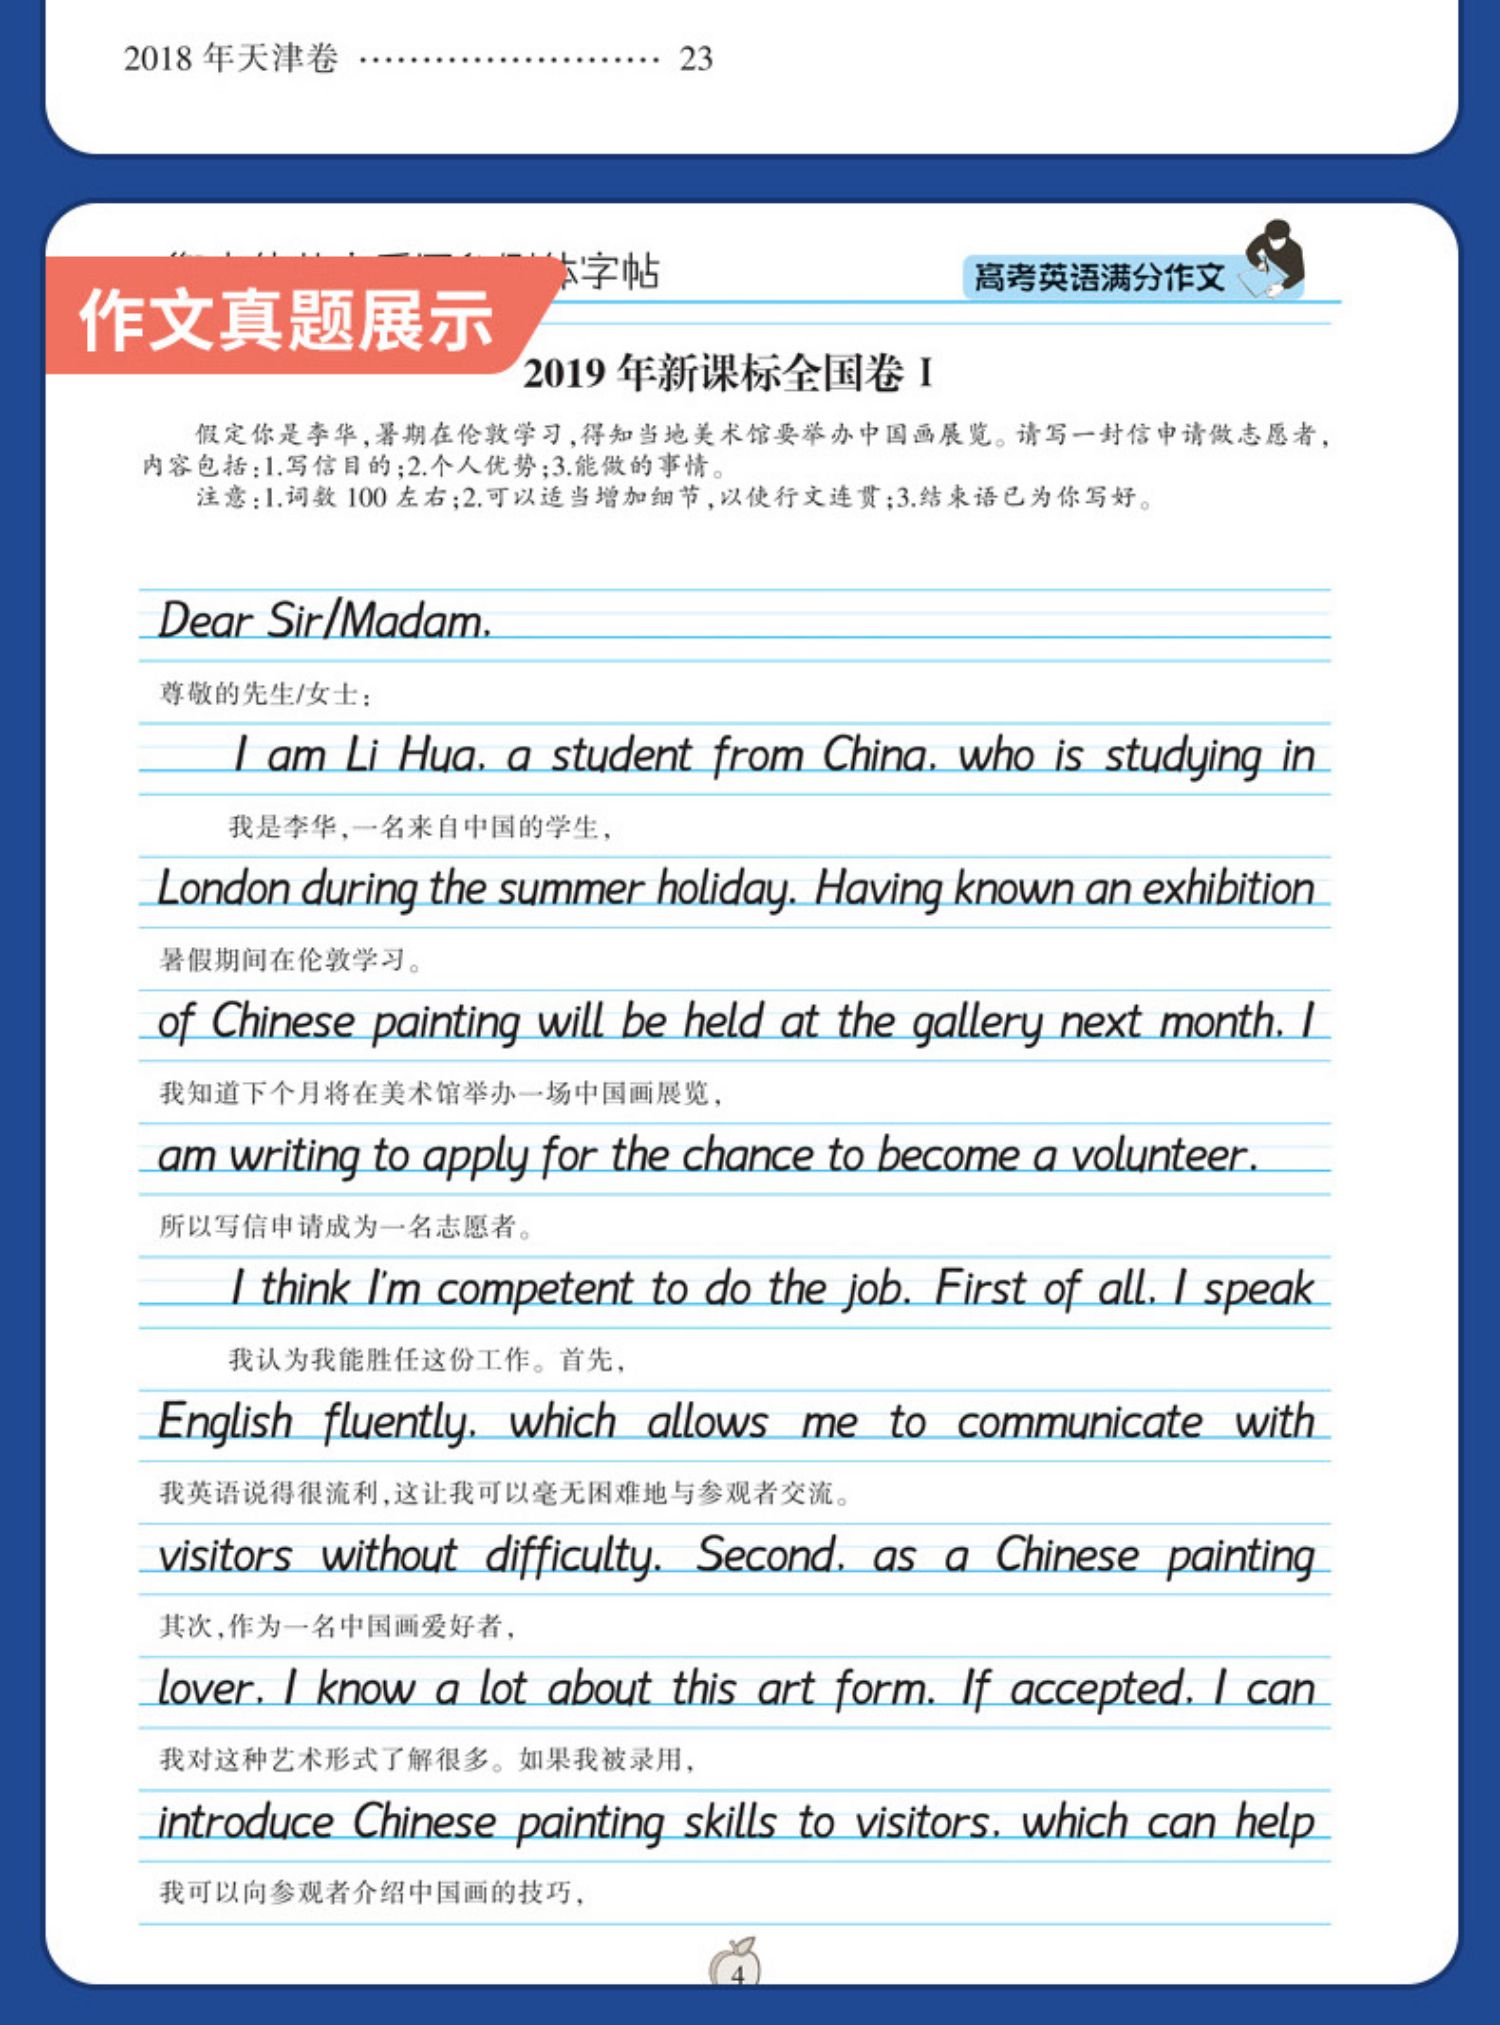 2018 年天津卷 ························ 23
体字帖
高考英语满分作文
作文真题展示
2019 年新课标全国卷 I
假定你是李华,暑期在伦敦学习,得知当地美术馆要举办中国画展览。请写一封信申请做志愿者,
内容包括:1.写信目的;2.个人优势;3.能做的事情。
注意:1.词数 100 左右;2.可以适当增加细节,以使行文连贯;3.结束语已为你写好。
Dear Sir/Madam,
尊敬的先生/女士:
I am Li Hua, a student from China, who is studying in
我是李华,一名来自中国的学生,
London during the summer holiday. Having known an exhibition
暑假期间在伦敦学习。
of Chinese painting will be held at the gallery next month, I
我知道下个月将在美术馆举办一场中国画展览,
am writing to apply for the chance to become a volunteer.
所以写信申请成为一名志愿者。
I think I'm competent to do the job. First of all, I speak
我认为我能胜任这份工作。首先,
English fluently, which allows me to communicate with
我英语说得很流利,这让我可以毫无困难地与参观者交流。
visitors without difficulty. Second, as a Chinese painting
其次,作为一名中国画爱好者,
lover, I know a lot about this art form. If accepted, I can
我对这种艺术形式了解很多。如果我被录用,
introduce Chinese painting skills to visitors, which can help
我可以向参观者介绍中国画的技巧,
4